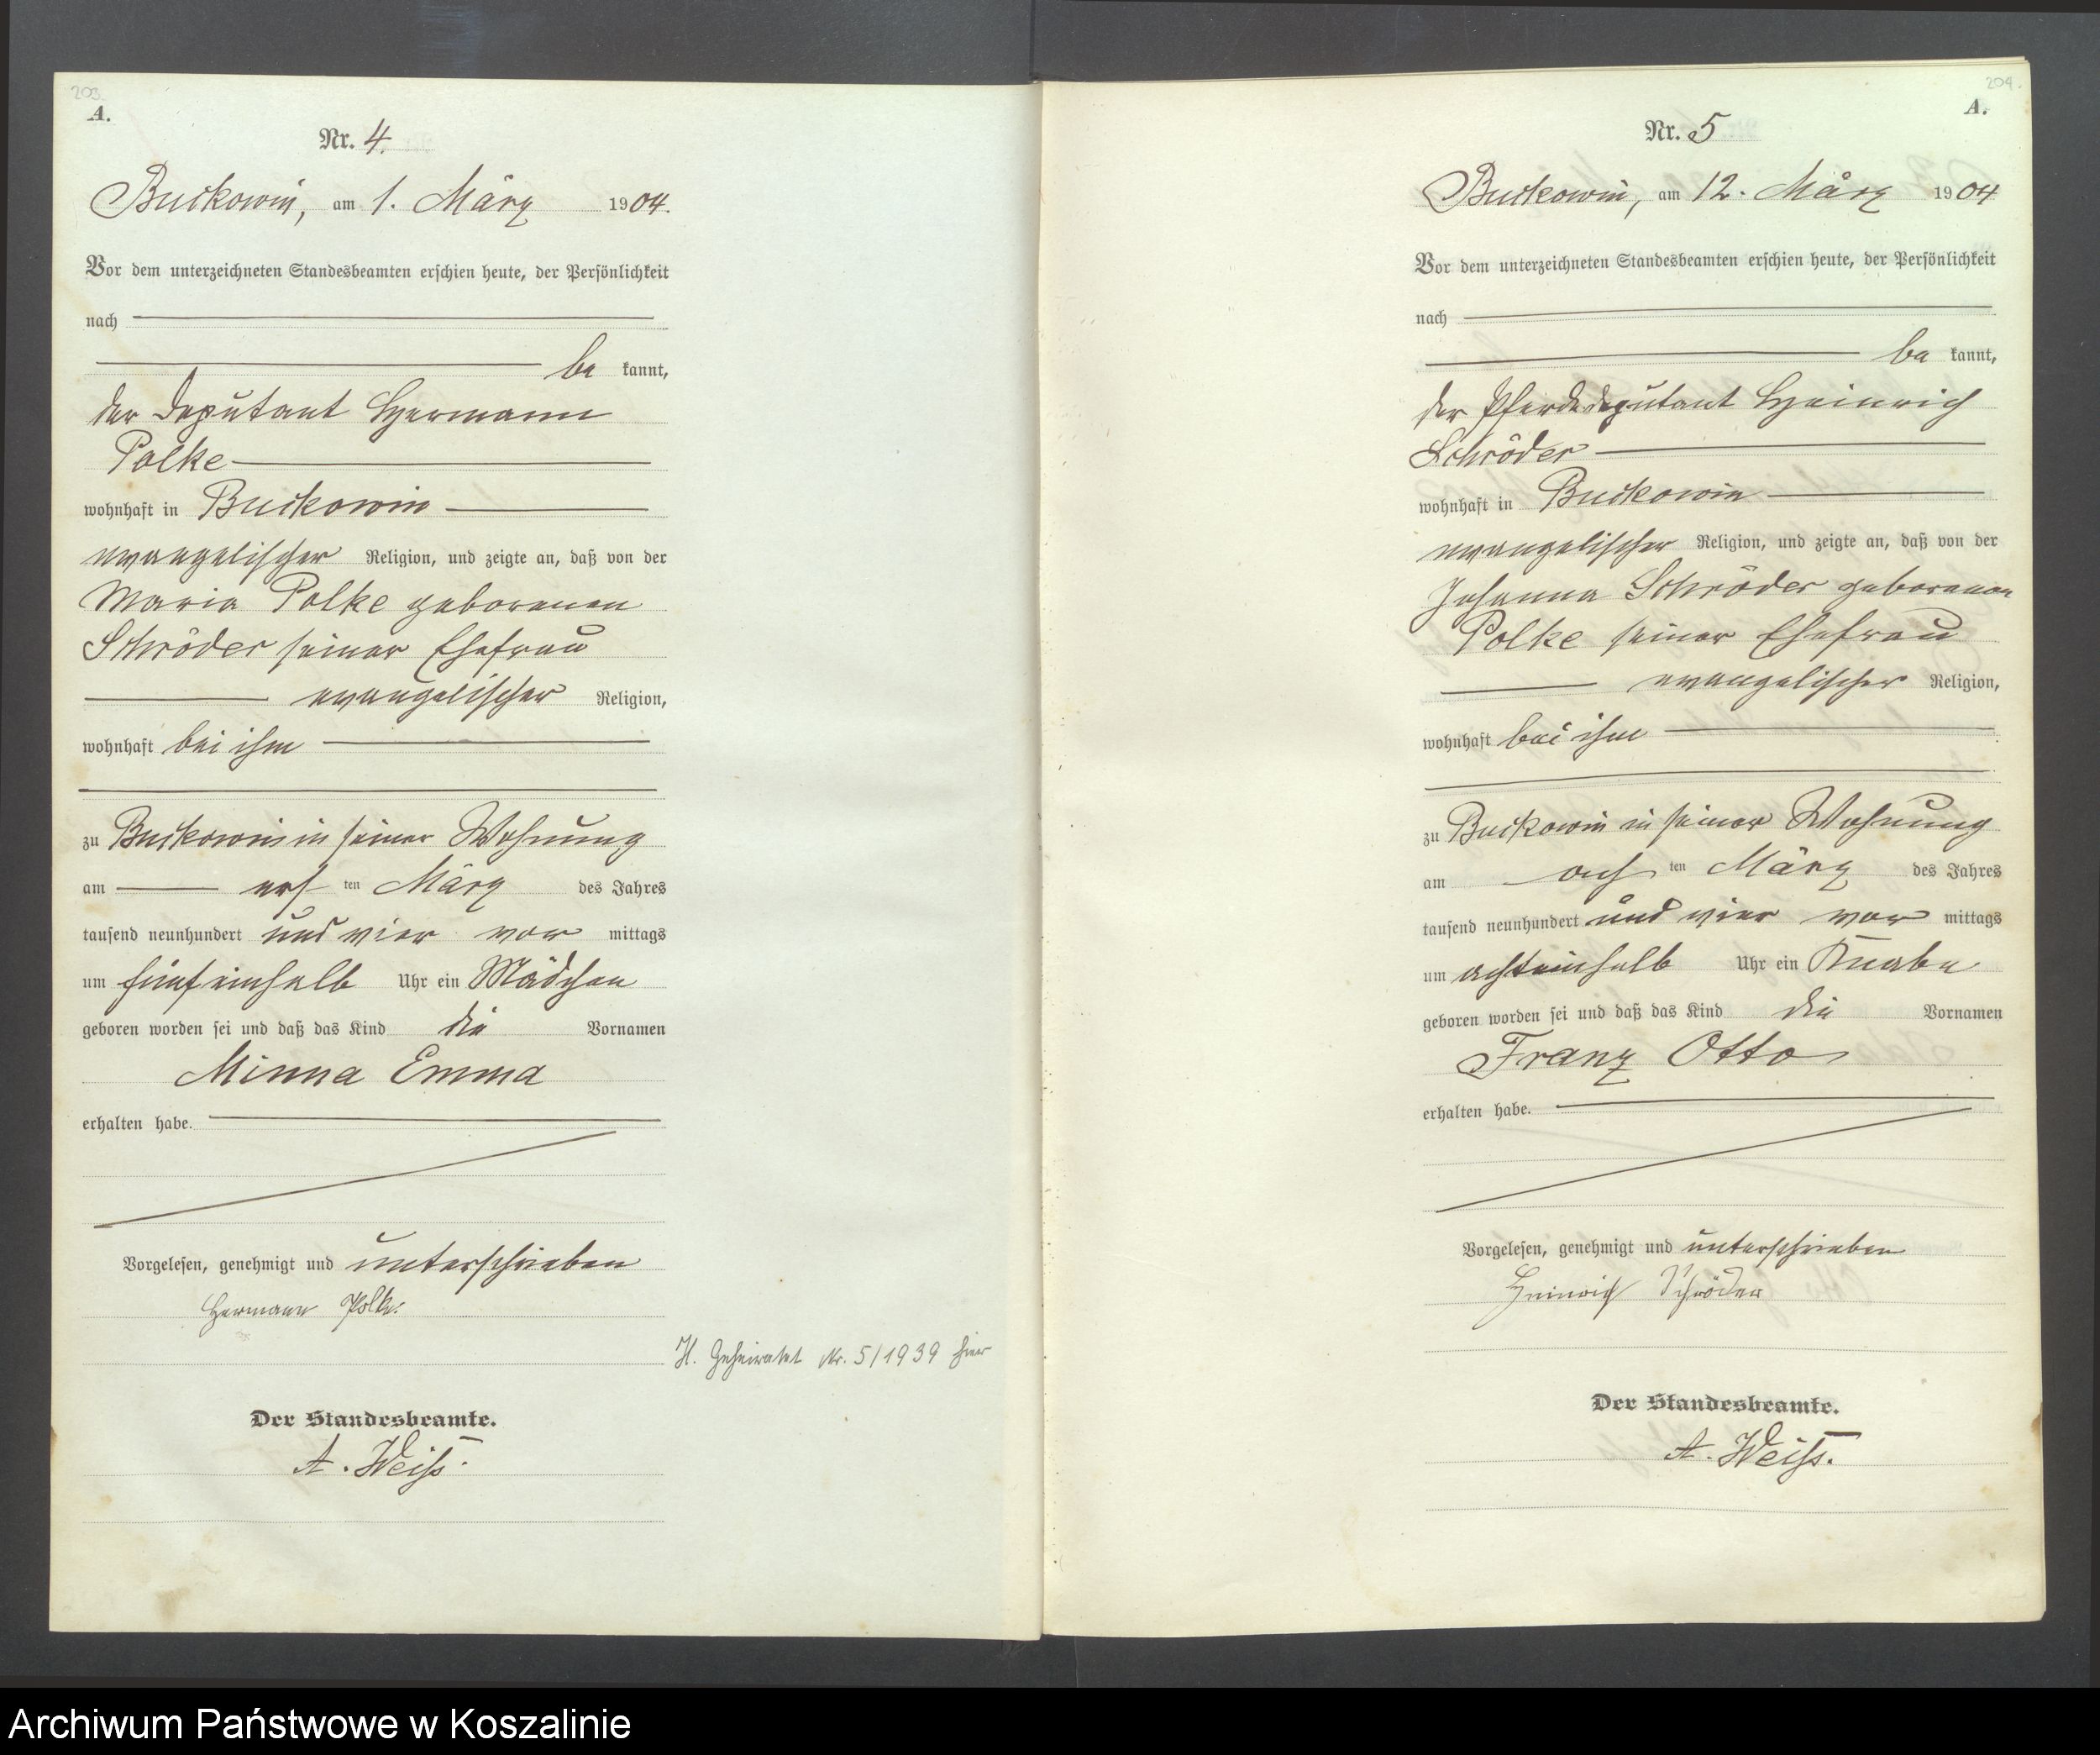 203.
A.
Nr. 4.
Buckowin, am 1. März 1904.
Vor dem unterzeichneten Standesbeamten erschien heute, der Persönlichkeit
nach
be kannt,
der Deputant Hermann
Polke
wohnhaft in Buckowin
evangelischer Religion, und zeigte an, daß von der
Maria Polke geborenen
Schröder seiner Ehefrau
evangelischer Religion,
wohnhaft bei ihm
zu Buckowin in seiner Wohnung
am ers ten März des Jahres
tausend neunhundert und vier vor mittags
um fünfeinhalb Uhr ein Mädchen
geboren worden sei und daß das Kind die Vornamen
Minna Emma
erhalten habe.
Vorgelesen, genehmigt und unterschrieben
Hermann Polke
H. Geheiratet Nr. 5/1939 hier
Der Standesbeamte.
A. Weiß.
204.
A.
Nr. 5
Buckowin, am 12. März 1904
Vor dem unterzeichneten Standesbeamten erschien heute, der Persönlichkeit
nach
be kannt,
der Pferdedeputant Heinrich
Schröder
wohnhaft in Buckowin
evangelischer Religion, und zeigte an, daß von der
Johanna Schröder geborenen
Polke seiner Ehefrau
evangelischer Religion,
wohnhaft bei ihm
zu Buckowin in seiner Wohnung
am ach ten März des Jahres
tausend neunhundert und vier vor mittags
um achteinhalb Uhr ein Knabe
geboren worden sei und daß das Kind die Vornamen
Franz Otto
erhalten habe.
Vorgelesen, genehmigt und unterschrieben
Heinrich Schröder
Der Standesbeamte.
A. Weiß.
Archiwum Państwowe w Koszalinie